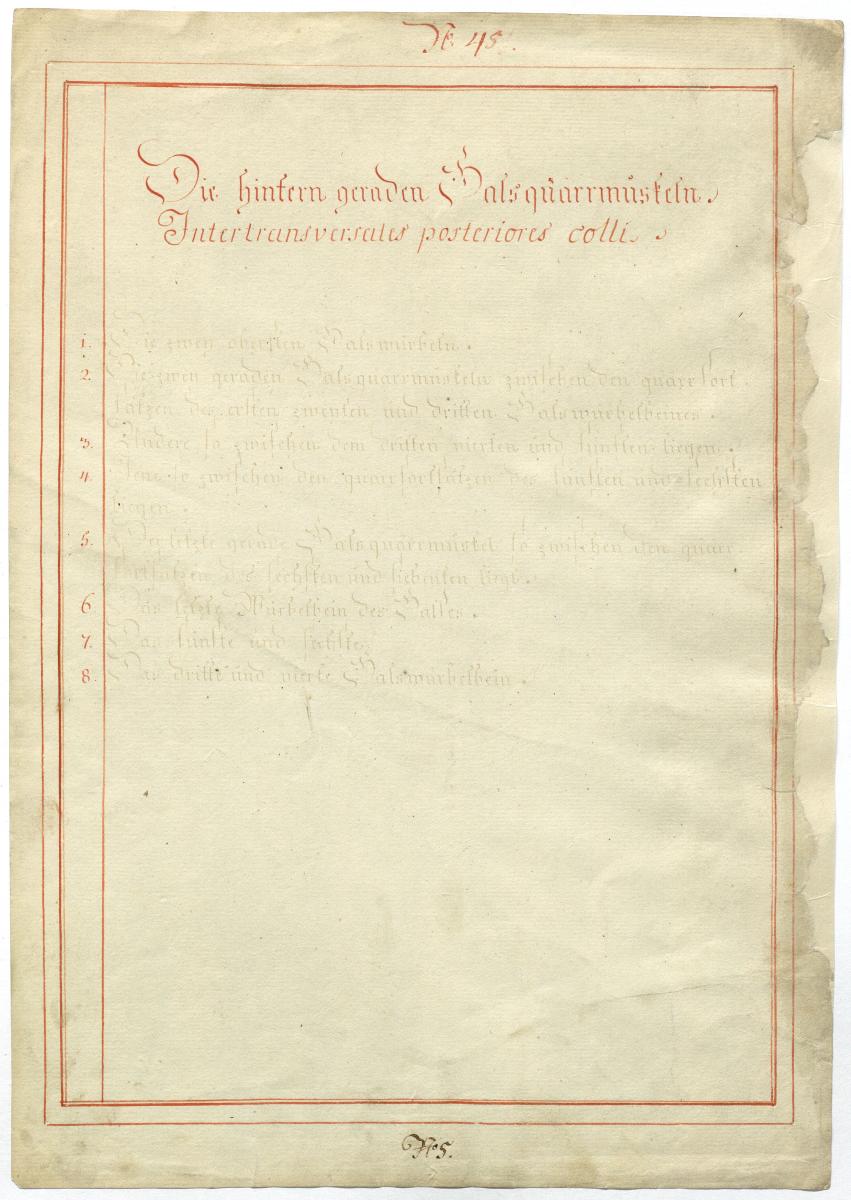 N: 48.
Die hintern geraden Halsquarrmuskeln.
Intertransversales posteriores colli.
1. Die zwey obersten Halswürbeln.
2. Die zwey geraden Halsquarrmuskeln zwischen den quarrfort-
sätzen des ersten zweyten und dritten Halswürbelbeines.
3. Andere so zwischen dem dritten vierten und fünften liegen.
4. Jene so zwischen den quarrfortsätzen des fünften und sechsten
liegen.
5. letzte gerade Halsquarrmuskel so zwischen den quarr-
fortsätzen des sechsten und siebenten liegt.
6. Das letzte Würbelbein des Halses.
7. Das fünfte und sechste.
8. Das dritte und vierte Halswürbelbein.
No 5.